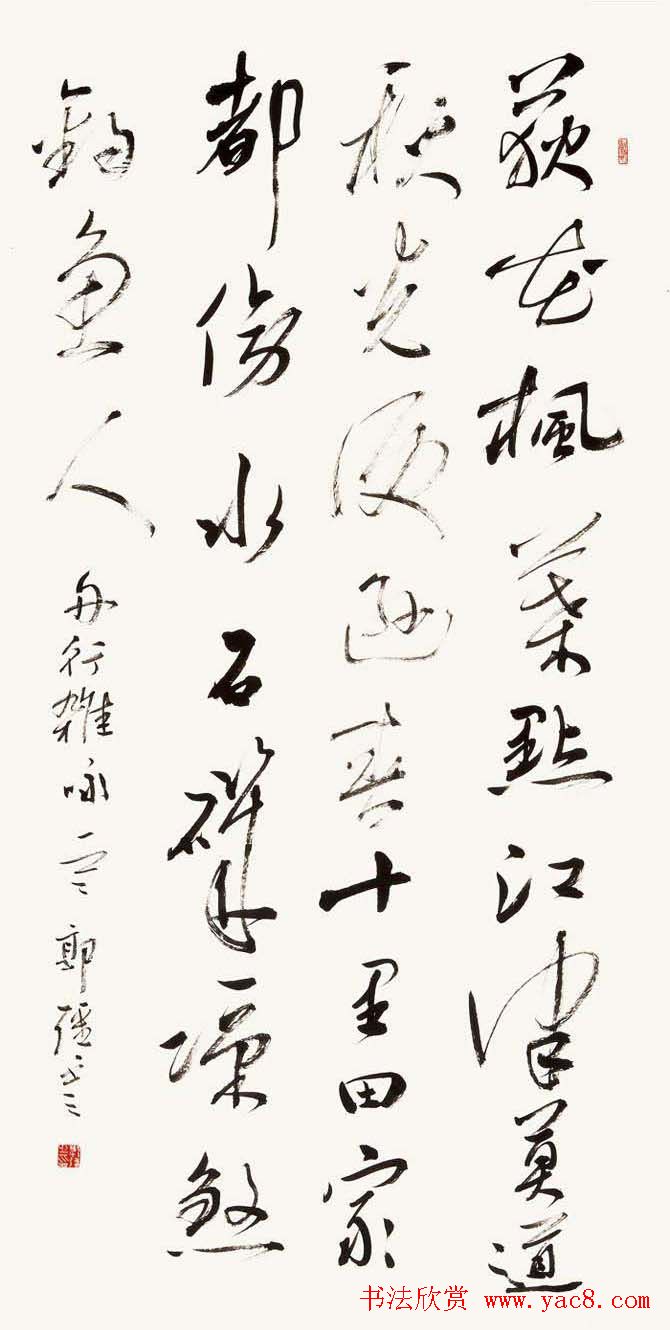 荻花楓葉點江津莫道
秋光便遜春十里田家
都傍水石煞
釣魚人
舟行雜詠 郭強
书法欣赏 www.yac8.com